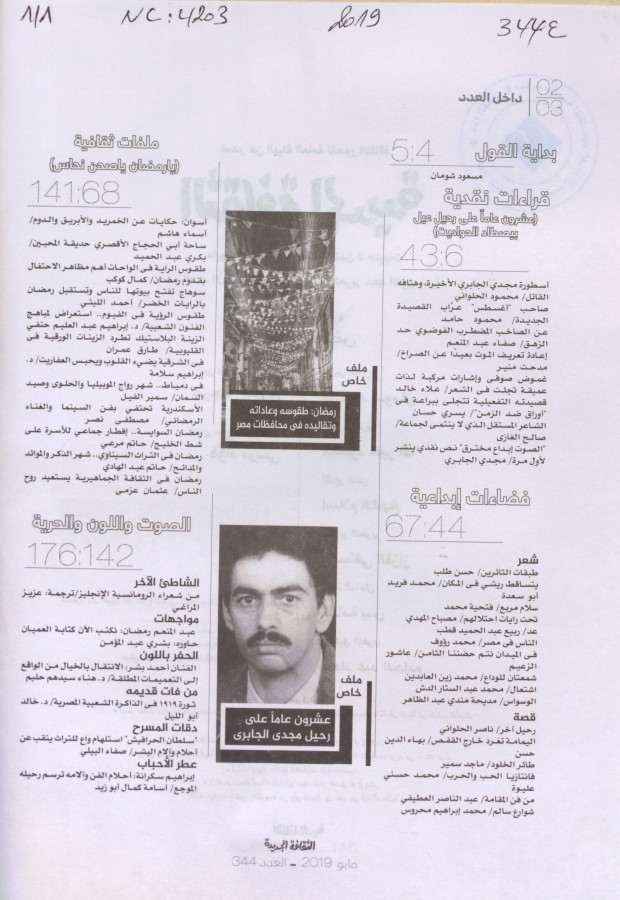 1/1 NC: 4203 2019 344٤
02
03
داخل العدد
بداية القول
5:4
مسعود شومان
قراءات نقدية
(عشرون عاماً على رحيل عيل
بيصطاد الحواديت)
43:6
أسطورة مجدي الجابري الأخيرة، وهتافه
القاتل/ محمود الحلواني
صاحب "أغسطس" عرّاب القصيدة
الجديدة/ محمود حامد
عن الصاخب المضطرب الفوضوي حد
الزهق/ صفاء عبد المنعم
إعادة تعريف الموت بعيدًا عن الصراخ/
مدحت منير
غموض صوفي وإشارات مركبة لذات
عميقة تجلت في الشعر/ علاء خالد
قصيدته التفعيلية تتجلى ببراعة في
"أوراق ضد الزمن"/ يسري حسان
الشاعر المستقل الذي لا ينتمى لجماعة/
صالح الغازى
"الصوت إبداع مخترق" نص نقدي ينشر
لأول مرة/ مجدي الجابري
فضاءات إبداعية
67:44
شعر
طبقات الثائرين/ حسن طلب
يتساقط ريشي فى المكان/ محمد فريد
أبو سعدة
سلام مربع/ فتحية محمد
تحت رايات احتلالهم/ مصباح المهدي
عد/ ربيع عبد الحميد قطب
الناس فى مصر/ محمد رؤوف
فى الميدان نتم حضننا الثامن/ عاشور
الزعيم
شمعتان للوداع/ محمد زين العابدين
اشتعال/ محمد عبد الستار الدش
الوسواس/ مديحة مندي عبد الظاهر
قصة
رحيل آخر/ ناصر الحلواني
اليمامة تغرد خارج القفص/ بهاء الدين
حسن
طائر الخلود/ ماجد سمير
فانتازيا الحب والحرب/ محمد حسني
عليوة
من فن المقامة/ عبد الناصر العطيفي
شوارع سالم/ محمد إبراهيم محروس
ملف
خاص
رمضان: طقوسه وعاداته
وتقاليده فى محافظات مصر
ملف
خاص
عشرون عاماً على
رحيل مجدى الجابرى
ملفات ثقافية
(يارمضان ياصحن نحاس)
141:68
أسوان: حكايات عن الخمريد والأبريق والدوم/
أسماء هاشم
ساحة أبي الحجاج الأقصري حديقة المحبين/
بكري عبد الحميد
طقوس الراية فى الواحات أهم مظاهر الاحتفال
بقدوم رمضان/ كمال كوكب
سوهاج تفتح بيوتها للناس وتستقبل رمضان
بالرايات الخضر/ أحمد الليثي
طقوس الرؤية فى الفيوم.. استعراض لمباهج
الفنون الشعبية/ د. إبراهيم عبد العليم حنفي
الزينة البلاستيك تطرد الزينات الورقية فى
القليوبية/ طارق عمران
فى الشرقية يضيء القلوب ويحبس العفاريت/ د.
إبراهيم سلامة
فى دمياط.. شهر رواج الموبيليا والحلوى وصيد
السمان/ سمير الفيل
الأسكندرية تحتفي بفن السينما والغناء
الرمضاني/ مصطفى نصر
رمضان السوايسة.. إفطار جماعي للأسرة على
شط الخليج/ حاتم مرعي
رمضان فى التراث السيناوي.. شهر الذكر والموائد
والمدائح/ حاتم عبد الهادي
رمضان فى الثقافة الجماهيرية يستعيد روح
الناس/ عثمان عزمى
الصوت واللون والحرية
176:142
الشاطئ الآخر
من شعراء الرومانسية الإنجليز/ترجمة: عزيز
المراغي
مواجهات
عبد المنعم رمضان: نكتب الآن كتابة العميان
حاوره: بشري عبد المؤمن
الحفر باللون
الفنان أحمد بشر: الانتقال بالخيال من الواقع
إلى التعميمات المطلقة/ د. هناء سيدهم حليم
من فات قديمه
ثورة ١٩١٩ فى الذاكرة الشعبية المصرية/ د. خالد
أبو الليل
دقات المسرح
"سلطان الحرافيش" استلهام واع للتراث ينقب عن
أحلام وآلام البشر/ صفاء البيلي
عطر الأحباب
إبراهيم سكرانة: أحلام الفن وآلامه ترسم رحيله
الموجع/ أسامة كمال أبو زيد
الثقافة الجديدة
مايو 2019 - العدد 344